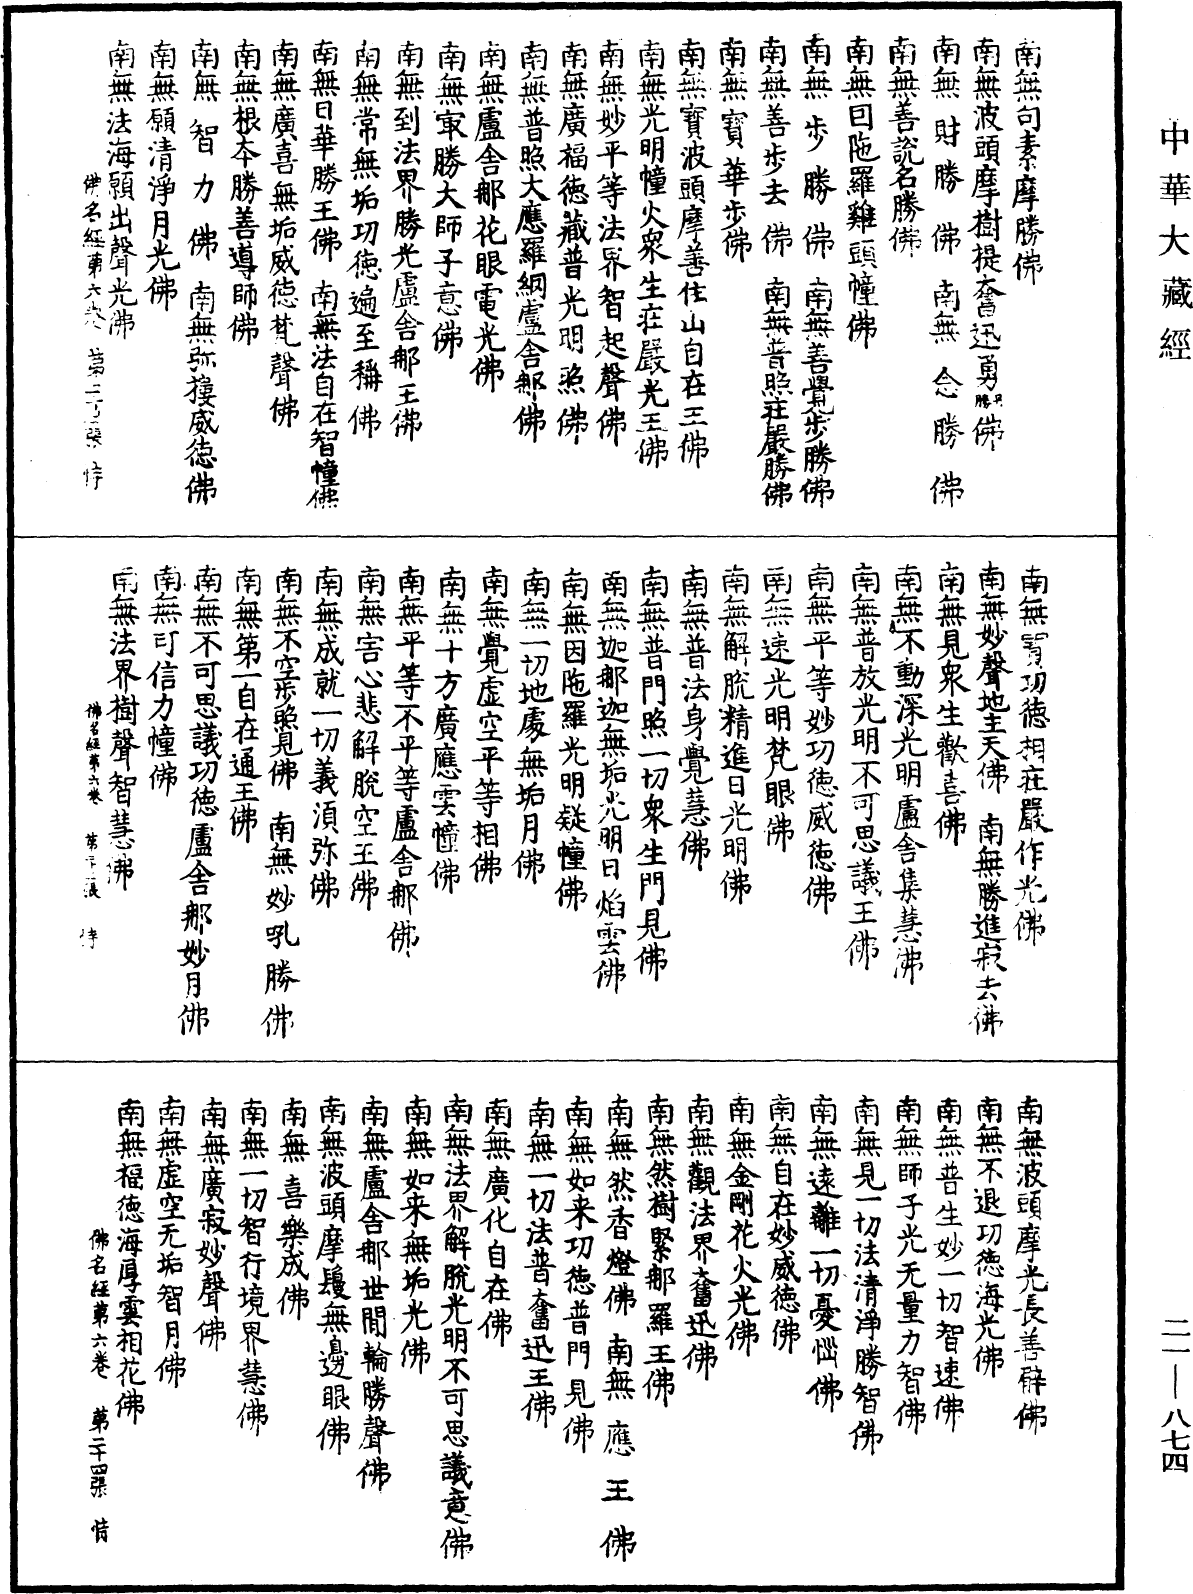 中華大藏經
南無句素摩勝佛
南無波頭摩樹提奮迅勇勝佛
南無財勝佛 南無念勝佛
南無善說名勝佛
南無因陁羅雞頭幢佛
南無步勝佛 南無善覺步勝佛
南無善步去佛 南無普照莊嚴勝佛
南無寶華步佛
南無寶波頭摩善住山自在王佛
南無光明幢火衆生莊嚴光王佛
南無妙平等法界智起聲佛
南無廣福德藏普光明照佛
南無普照大應羅網盧舍那佛
南無盧舍那花眼電光佛
南無㝡勝大師子意佛
南無到法界勝光盧舍那王佛
南無常無垢功德遍至稱佛
南無日華勝王佛 南無法自在智幢佛
南無廣喜無垢威德梵聲佛
南無根本勝善導師佛
南無智力佛 南無弥摟威德佛
南無願清淨月光佛
南無法海願出聲光佛
佛名經第六卷 第二十二張
南無寶功德相莊嚴作光佛
南無妙聲地主天佛 南無勝進寂去佛
南無見衆生歡喜佛
南無不動深光明盧舍集慧佛
南無普放光明不可思議王佛
南無平等妙功德威德佛
南無速光明梵眼佛
南無解脫精進日光明佛
南無普法身覺慧佛
南無普門照一切衆生門見佛
南無迦那迦無垢光明日焰雲佛
南無因陁羅光明疑幢佛
南無一切地處無垢月佛
南無覺虛空平等相佛
南無十方廣應雲幢佛
南無平等不平等盧舍那佛
南無害心悲解脫空王佛
南無成就一切義須弥佛
南無不空步照見佛 南無妙吼勝佛
南無第一自在通王佛
南無不可思議功德盧舍那妙月佛
南無可信力幢佛
南無法界樹聲智慧佛
佛名經第六卷 第二十三張
南無波頭摩光長善辟佛
南無不退功德海光佛
南無普生妙一切智速佛
南無師子光无量力智佛
南無見一切法清淨勝智佛
南無遠離一切憂惱佛
南無自在妙威德佛
南無金剛花火光佛
南無觀法界奮迅佛
南無然樹緊那羅王佛
南無然香燈佛 南無應王佛
南無如来功德普門見佛
南無一切法普奮迅王佛
南無廣化自在佛
南無法界解脫光明不可思議意佛
南無如来無垢光佛
南無盧舍那世間輪勝聲佛
南無波頭摩鬘無邊眼佛
南無喜樂成佛
南無一切智行境界慧佛
南無廣寂妙聲佛
南無虛空无垢智月佛
南無福德海厚雲相花佛
佛名經第六卷 第二十四張
二一—八七四